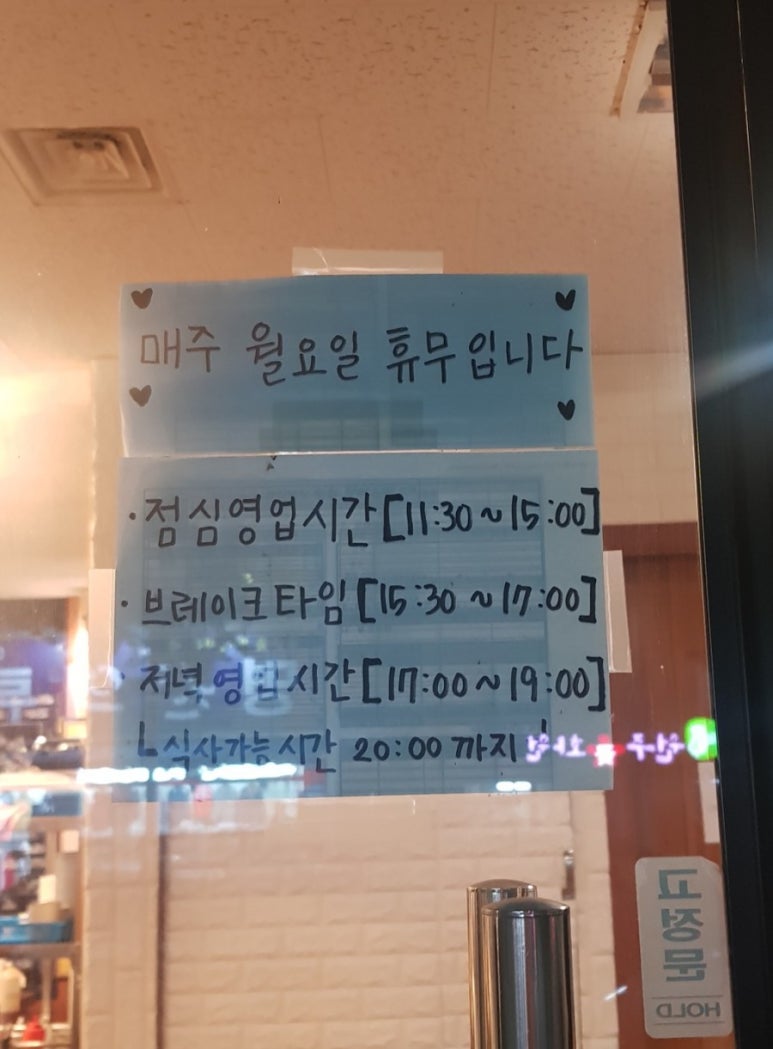 매주 월요일 휴무입니다
· 점심영업시간 [11:30 ~ 15:00]
· 브레이크타임 [15:30 ~ 17:00]
· 저녁영업시간 [17:00 ~ 19:00]
ㄴ식사가능시간 20:00 까지
고정문
HOLD